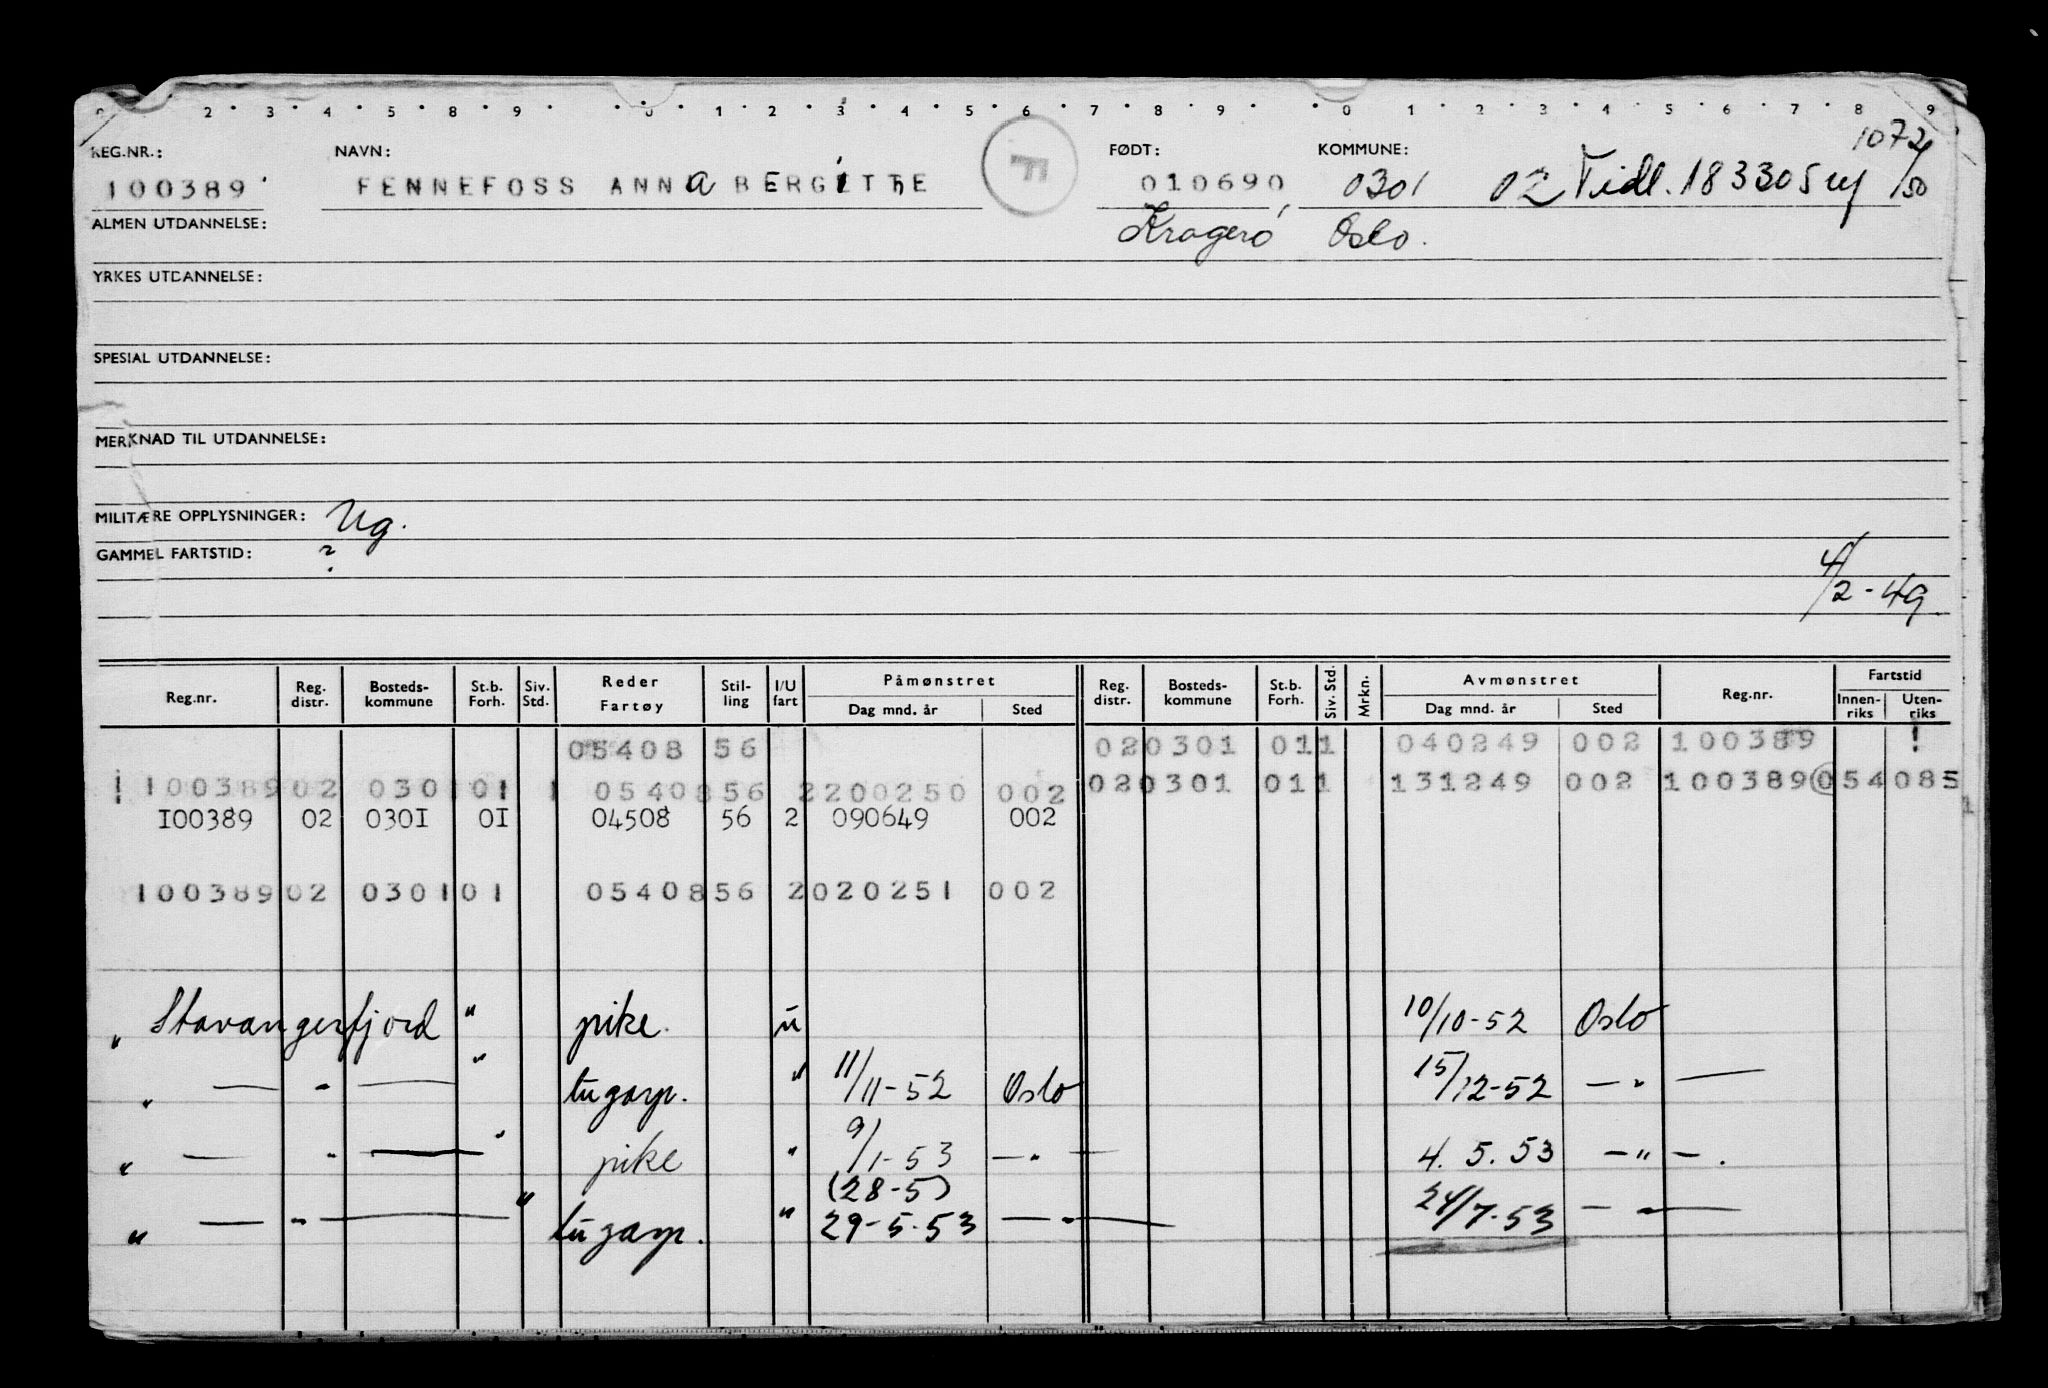 2 3 4 5 8 9 0 1 2 3 4 5 6 7 8 9 0 1 2 3 4 5 6 7 8 9
1072
REG.NR.: NAVN: F FØDT: KOMMUNE:
100389 FENNEFOSS ANNa BERGITHE 010690 0301 02 Tidl. 183305 /50
ALMEN UTDANNELSE: Kragerö Oslo.
YRKES UTDANNELSE:
SPESIAL UTDANNELSE:
MERKNAD TIL UTDANNELSE:
MILITÆRE OPPLYSNINGER: Ug.
GAMMEL FARTSTID: ?
4/2-49
Reg.nr. Reg. distr. Bosteds-kommune St.b. Forh. Siv. Std. Reder Fartøy Stil-ling I/U fart Påmønstret Dag mnd. år Sted Reg. distr. Bosteds-kommune St.b. Forh. Siv. Std. Mrkn. Avmønstret Dag mnd. år Sted Reg.nr. Fartstid Innen-riks Uten-riks
05408 56 020301 011 040249 002 100389 !
! 100389 02 0301 01 1 05408 56 2 200250 002 020301 011 131249 002 100389 054 085
I00389 02 030I 0I 04508 56 2 090649 002 1
100389 02 0301 01 05408 56 2 020251 002
" Stavangerfjord " pike. u 10/10-52 Oslo
" — " — " lugarp. " 11/11-52 Oslo 15/12-52 — " —
" — " — " pike " 9/1-53 — " — 4. 5. 53 — " — .
(28-5)
" — " — " lugarp. " 29-5-53 — " — 24/7-53 — " —